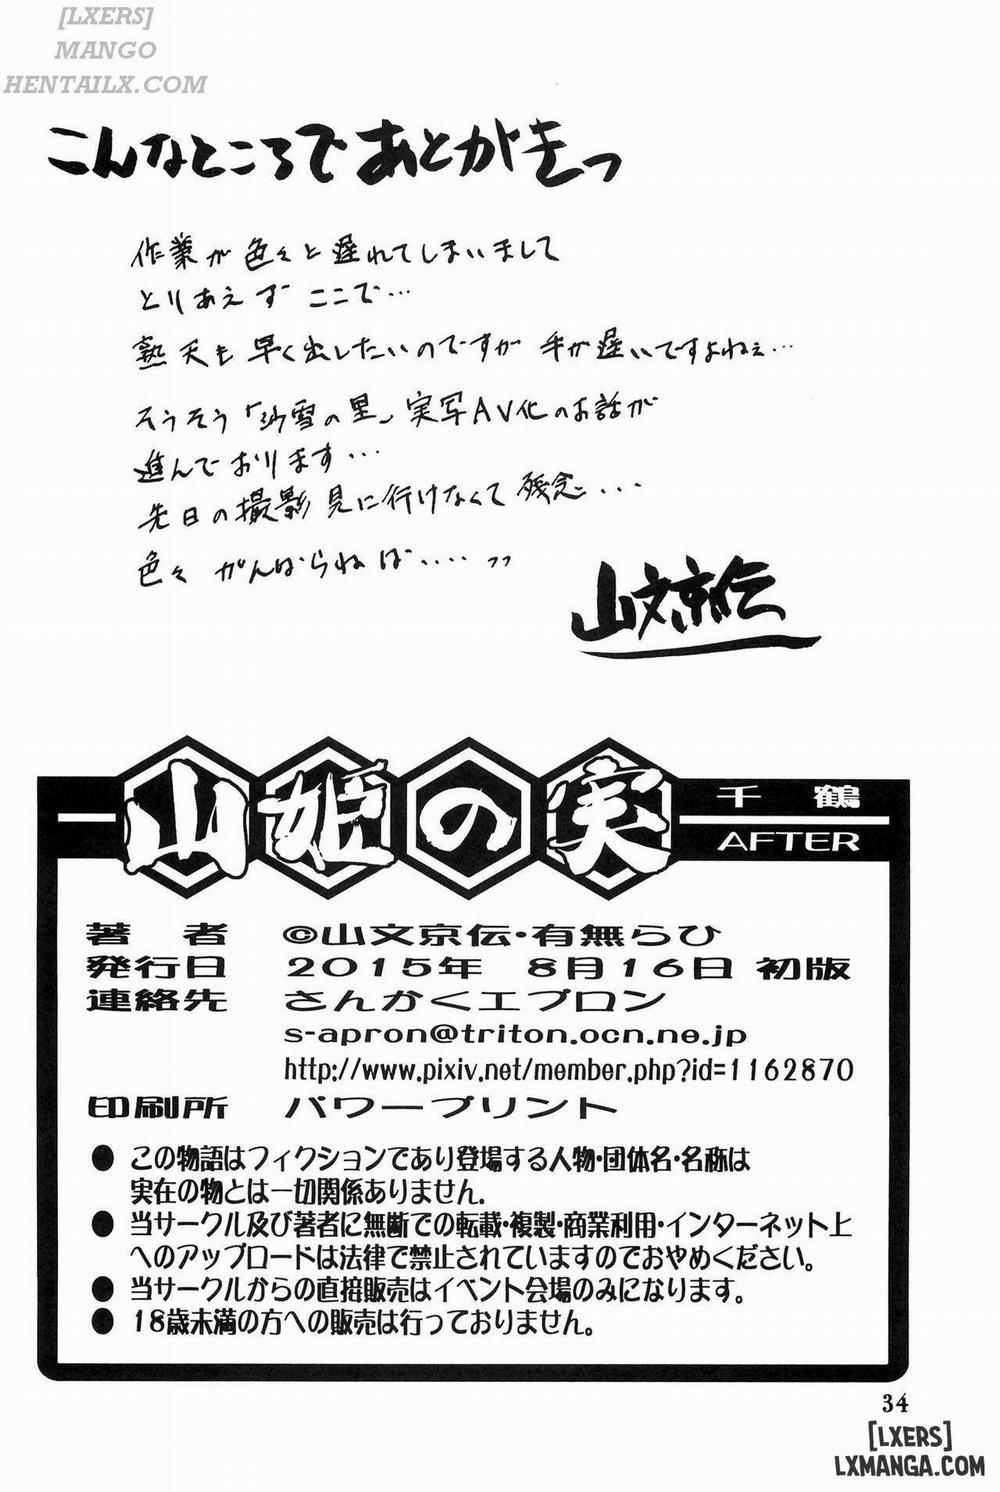 [LXERS]
MANGO
HENTAILX.COM
こんなところであとがきっ
作業が色々と遅れてしまいまして
とりあえず ここで…
熟天も 早く出したいのですが 手が遅いですよねぇ…
そうそう「沙雪の里」実写AV化のお話が
進んでおります…
先日の撮影見に行けなくて 残念…
色々 がんばらねば…. っっ
山文京伝
山姫の実
千鶴
AFTER
著者 ©山文京伝・有無らひ
発行日 2015年 8月16日 初版
連絡先 さんかくエプロン
s-apron@triton.ocn.ne.jp
http://www.pixiv.net/member.php?id=1162870
印刷所 パワープリント
● この物語はフィクションであり登場する人物・団体名・名称は
実在の物とは一切関係ありません.
● 当サークル及び著者に無断での転載・複製・商業利用・インターネット上
へのアップロードは法律で禁止されていますのでおやめください。
● 当サークルからの直接販売はイベント会場のみになります。
● 18歳未満の方への販売は行っておりません。
34
[LXERS]
LXMANGA.COM